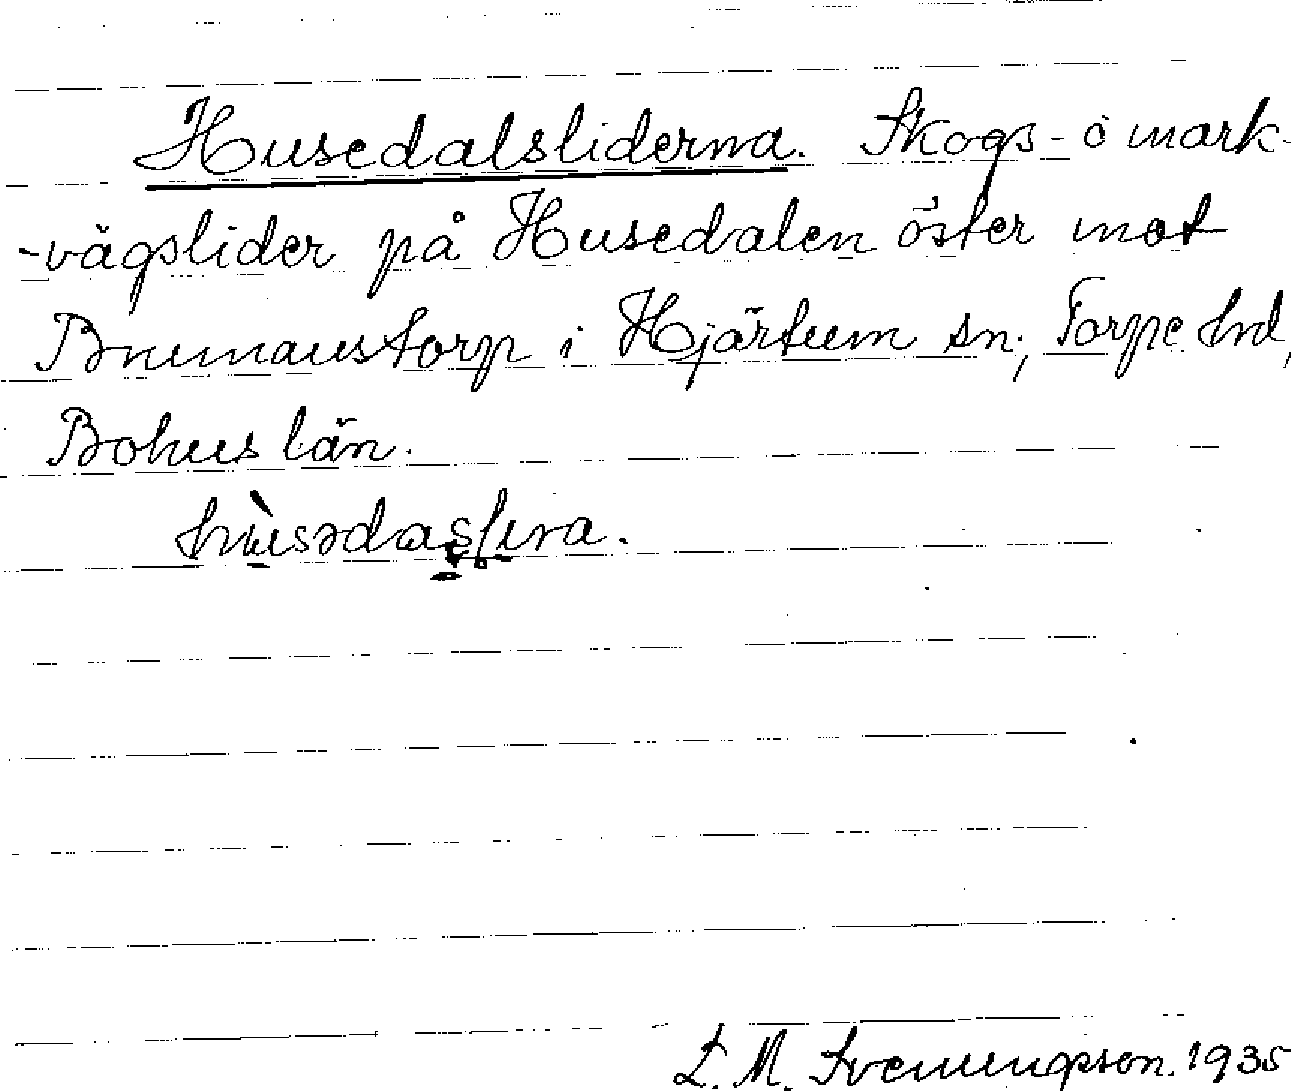 Husedalsliderna. Skogs- o mark-
-vägslider på Husedalen öster mot
Brunnanstorp i Hjärtum sn, Torpe hd,
Bohus län.
L. M. Svenungson. 1935